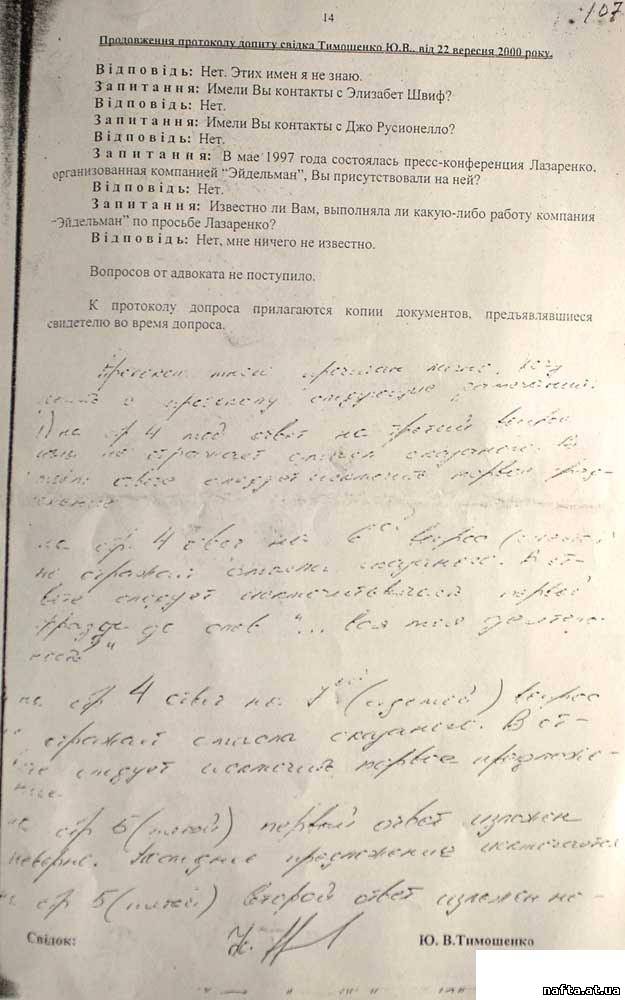 14
107
Продовження протоколу допиту свідка Тимошенко Ю.В., від 22 вересня 2000 року.
Відповідь: Нет. Этих имен я не знаю.
Запитання: Имели Вы контакты с Элизабет Швиф?
Відповідь: Нет.
Запитання: Имели Вы контакты с Джо Русионелло?
Відповідь: Нет.
Запитання: В мае 1997 года состоялась пресс-конференция Лазаренко,
организованная компанией “Эйдельман”, Вы присутствовали на ней?
Відповідь: Нет.
Запитання: Известно ли Вам, выполняла ли какую-либо работу компания
“Эйдельман” по просьбе Лазаренко?
Відповідь: Нет, мне ничего не известно.
Вопросов от адвоката не поступило.
К протоколу допроса прилагаются копии документов, предъявлявшиеся
свидетелю во время допроса.
Протокол мной прочитан лично.
к протоколу следующие замечания:
1) на стр 4 мой ответ на третий вопрос
не отражает смысла сказанного. В
ответе следует исключить первое
на стр 4 ответ на 6 вопрос
не отражает смысла сказанного. В от-
вете следует исключить первой
фразы до слов "... вся моя деятель-
ность"
на стр 4 ответ на 7 (седьмой) вопрос
отражает смысла сказанного. В от-
следует исключить первое предложе-
ние.
стр 5 (пятой) первый ответ изложен
неверно. предложение исключается
стр 5 (пятой) второй ответ изложен не-
Свідок:
Ю. В.Тимошенко
nafta.at.ua